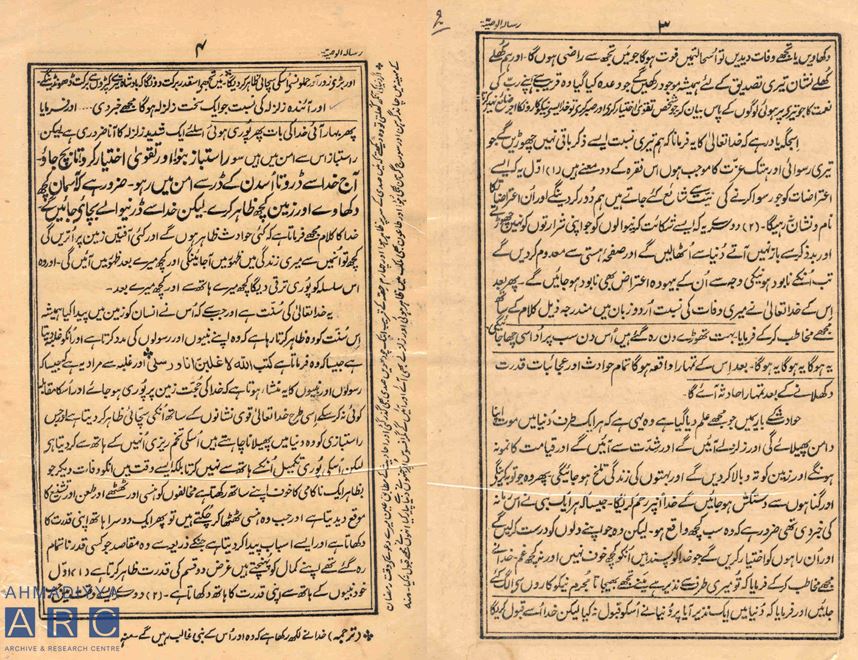 رسالہ الوصیۃ
۳
دکھاویں یا تجھے وفات دیدیں تو اس حالت میں فوت ہوگا جو میں تجھ سے راضی ہوں گا۔ اور ہم کھلے
کھلے نشان تیری تصدیق کے لئے ہمیشہ موجود رکھیں گے جو وعدہ کیا گیا وہ قریب ہے اپنے رب کی
نعمت کا جو تیرے پر ہوئی لوگوں کے پاس بیان کر جو شخص تقویٰ اختیار کرے اور صبر کرے تو خدا ایسے نیکوکاروں کا اجر ضائع نہیں کرتا
اس جگہ یاد رہے کہ خدا تعالیٰ کا یہ فرمانا کہ ہم تیری نسبت ایسے ذکر باقی نہیں چھوڑیں گے جو
تیری رسوائی اور ہتک عزت کا موجب ہوں اس فقرہ کے دو معنے ہیں (۱) اول یہ کہ ایسے
اعتراضات کو جو رسوا کرنے کی نیت سے شائع کئے جاتے ہیں ہم دور کر دینگے اور ان اعتراضات کا
نام و نشان نہ رہیگا۔ (۲) دوسرے یہ کہ ایسے شکایت کرنیوالوں کو جو اپنی شرارتوں کو نہیں چھوڑتے
اور بد ذکر سے باز نہیں آتے دنیا سے اٹھا لیں گے اور صفحۂ ہستی سے معدوم کر دیں گے
تب انکے نابود ہونیکی وجہ سے ان کے بیہودہ اعتراض بھی نابود ہو جائیں گے۔ پھر بعد
اس کے خدا تعالیٰ نے میری وفات کی نسبت اردو زبان میں مندرجہ ذیل کلام کے ساتھ
مجھے مخاطب کر کے فرمایا۔ بہت تھوڑے دن رہ گئے ہیں اس دن سب پر اداسی چھا جائیگی
یہ ہوگا یہ ہوگا یہ ہوگا۔ بعد اس کے تمہارا واقعہ ہوگا تمام حوادث اور عجائبات قدرت
دکھلانے کے بعد تمہارا حادثہ آئے گا۔
حوادث کے بارے میں جو مجھے علم دیا گیا ہے وہ یہی ہے کہ ہر ایک طرف دنیا میں موت اپنا
دامن پھیلائے گی اور زلزلے آئیں گے اور شدت سے آئیں گے اور قیامت کا نمونہ
ہونگے اور زمین کو تہ و بالا کر دیں گے اور بہتوں کی زندگی تلخ ہو جائیگی پھر وہ جو توبہ کرینگے
اور گناہوں سے دستکش ہو جائیں گے خدا انپر رحم کریگا۔ جیسا کہ ہر ایک نبی نے اس زمانہ
کی خبر دی تھی ضرور ہے کہ وہ سب کچھ واقع ہو۔ لیکن وہ جو اپنے دلوں کو درست کر لیں گے
اور ان راہوں کو اختیار کریں گے جو خدا کو پسند ہیں انکو کچھ خوف نہیں اور نہ کچھ غم۔ خدا نے
مجھے مخاطب کر کے فرمایا کہ تو میری طرف سے نذیر ہے میں نے تجھے بھیجا تا مجرم نیکوکاروں سے الگ کئے
جائیں اور فرمایا کہ دنیا میں ایک نذیر آیا پر دنیا نے اسکو قبول نہ کیا لیکن خدا اسے قبول کریگا
رسالہ الوصیۃ
۴
اور بڑے زور آور حملوں سے اسکی سچائی ظاہر کر دیگا میں تجھے اسقدر برکت دونگا کہ بادشاہ تیرے کپڑوں سے برکت ڈھونڈیں گے۔
اور آئندہ زلزلہ کی نسبت جو ایک سخت زلزلہ ہوگا مجھے خبر دی .... اور فرمایا
پھر بہار آئی خدا کی بات پھر پوری ہوئی اسلئے ایک شدید زلزلہ کا آنا ضروری ہے لیکن
راستباز اس سے امن میں ہیں سو راستباز بنو! اور تقویٰ اختیار کرو تا بچ جاؤ۔
آج خدا سے ڈرو تا اس دن کے ڈر سے امن میں رہو۔ ضرور ہے کہ آسمان کچھ
دکھاوے اور زمین کچھ ظاہر کرے لیکن خدا سے ڈرنیوالے بچائے جائیں گے
خدا کا کلام مجھے فرماتا ہے کہ کئی حوادث ظاہر ہوں گے اور کئی آفتیں زمین پر اتریں گی
کچھ تو انمیں سے میری زندگی میں ظہور میں آ جائینگی اور کچھ میرے بعد ظہور میں آئیں گی۔ اور وہ
اس سلسلہ کو پوری ترقی دیگا کچھ میرے ہاتھ سے اور کچھ میرے بعد۔
یہ خدا تعالیٰ کی سنت ہے اور جب سے کہ اس نے انسان کو زمین میں پیدا کیا ہمیشہ
اس سنت کو وہ ظاہر کرتا رہا ہے کہ وہ اپنے نبیوں اور رسولوں کی مدد کرتا ہے اور انکو غلبہ دیتا
ہے جیسا کہ وہ فرماتا ہے کتب اللہ لاغلبن انا ورسلی٭ اور غلبہ سے مراد یہ ہے کہ جیسا کہ
رسولوں اور نبیوں کا یہ منشاء ہوتا ہے کہ خدا کی حجت زمین پر پوری ہو جائے اور اسکا مقابلہ
کوئی نہ کر سکے اسی طرح خدا تعالیٰ قوی نشانوں کے ساتھ انکی سچائی ظاہر کر دیتا ہے اور جس
راستبازی کو وہ دنیا میں پھیلانا چاہتے ہیں اسکی تخم ریزی انہیں کے ہاتھ سے کر دیتا ہے
لیکن اسکی پوری تکمیل انکے ہاتھ سے نہیں کرتا بلکہ ایسے وقت میں انکو وفات دیکر جو
بظاہر ایک ناکامی کا خوف اپنے ساتھ رکھتا ہے مخالفوں کو ہنسی اور ٹھٹھے اور طعن اور تشنیع کا
موقع دیدیتا ہے اور جب وہ ہنسی ٹھٹھا کر چکتے ہیں تو پھر ایک دوسرا ہاتھ اپنی قدرت کا
دکھاتا ہے اور ایسے اسباب پیدا کر دیتا ہے جنکے ذریعہ سے وہ مقاصد جو کسی قدر ناتمام
رہ گئے تھے اپنے کمال کو پہنچتے ہیں غرض دو قسم کی قدرت ظاہر کرتا ہے (۱) اول
خود نبیوں کے ہاتھ سے اپنی قدرت کا ہاتھ دکھاتا ہے۔ (۲) دوسرے
٭ (ترجمہ) خدا نے لکھ رکھا ہے کہ وہ اور اُس کے نبی غالب رہیں گے۔ منہ
AHMADIYYA
ARC
ARCHIVE & RESEARCH CENTRE